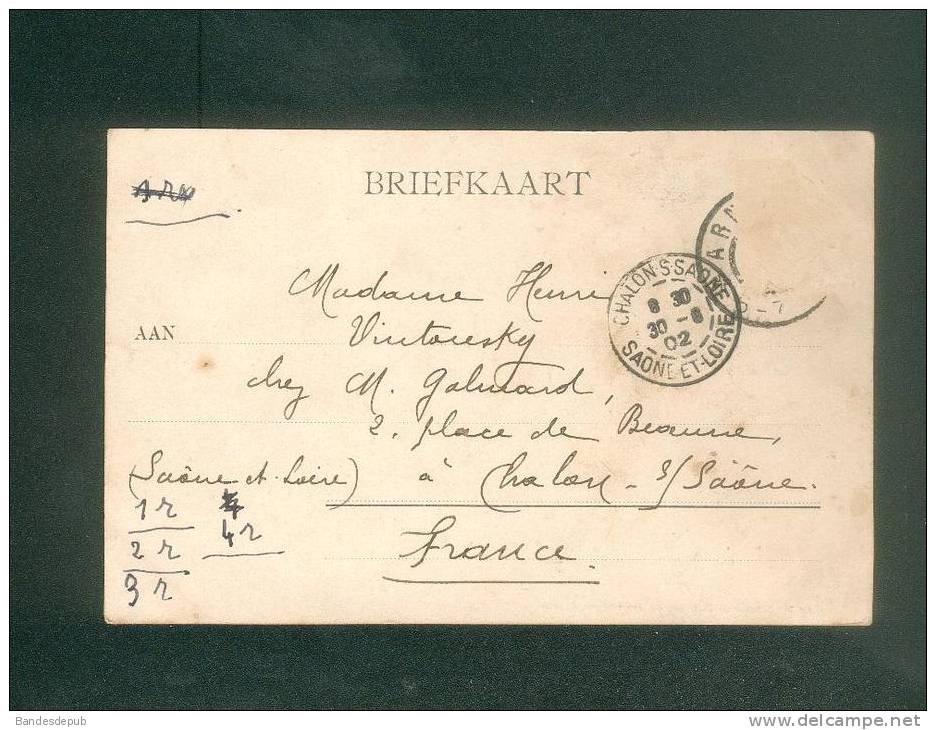 BRIEFKAART
ARA
CHALON-S-SAONE
8 30
30 - 8
02
SAONE-ET-LOIRE
Madame Henri
AAN Vintousky
chez M. Galmard,
2. place de Beaune,
(Saône et Loire) à Chalon - s/ Saône.
1 r
4 r
2 r
France.
3 r
Bandesdepub
www.delcampe.net